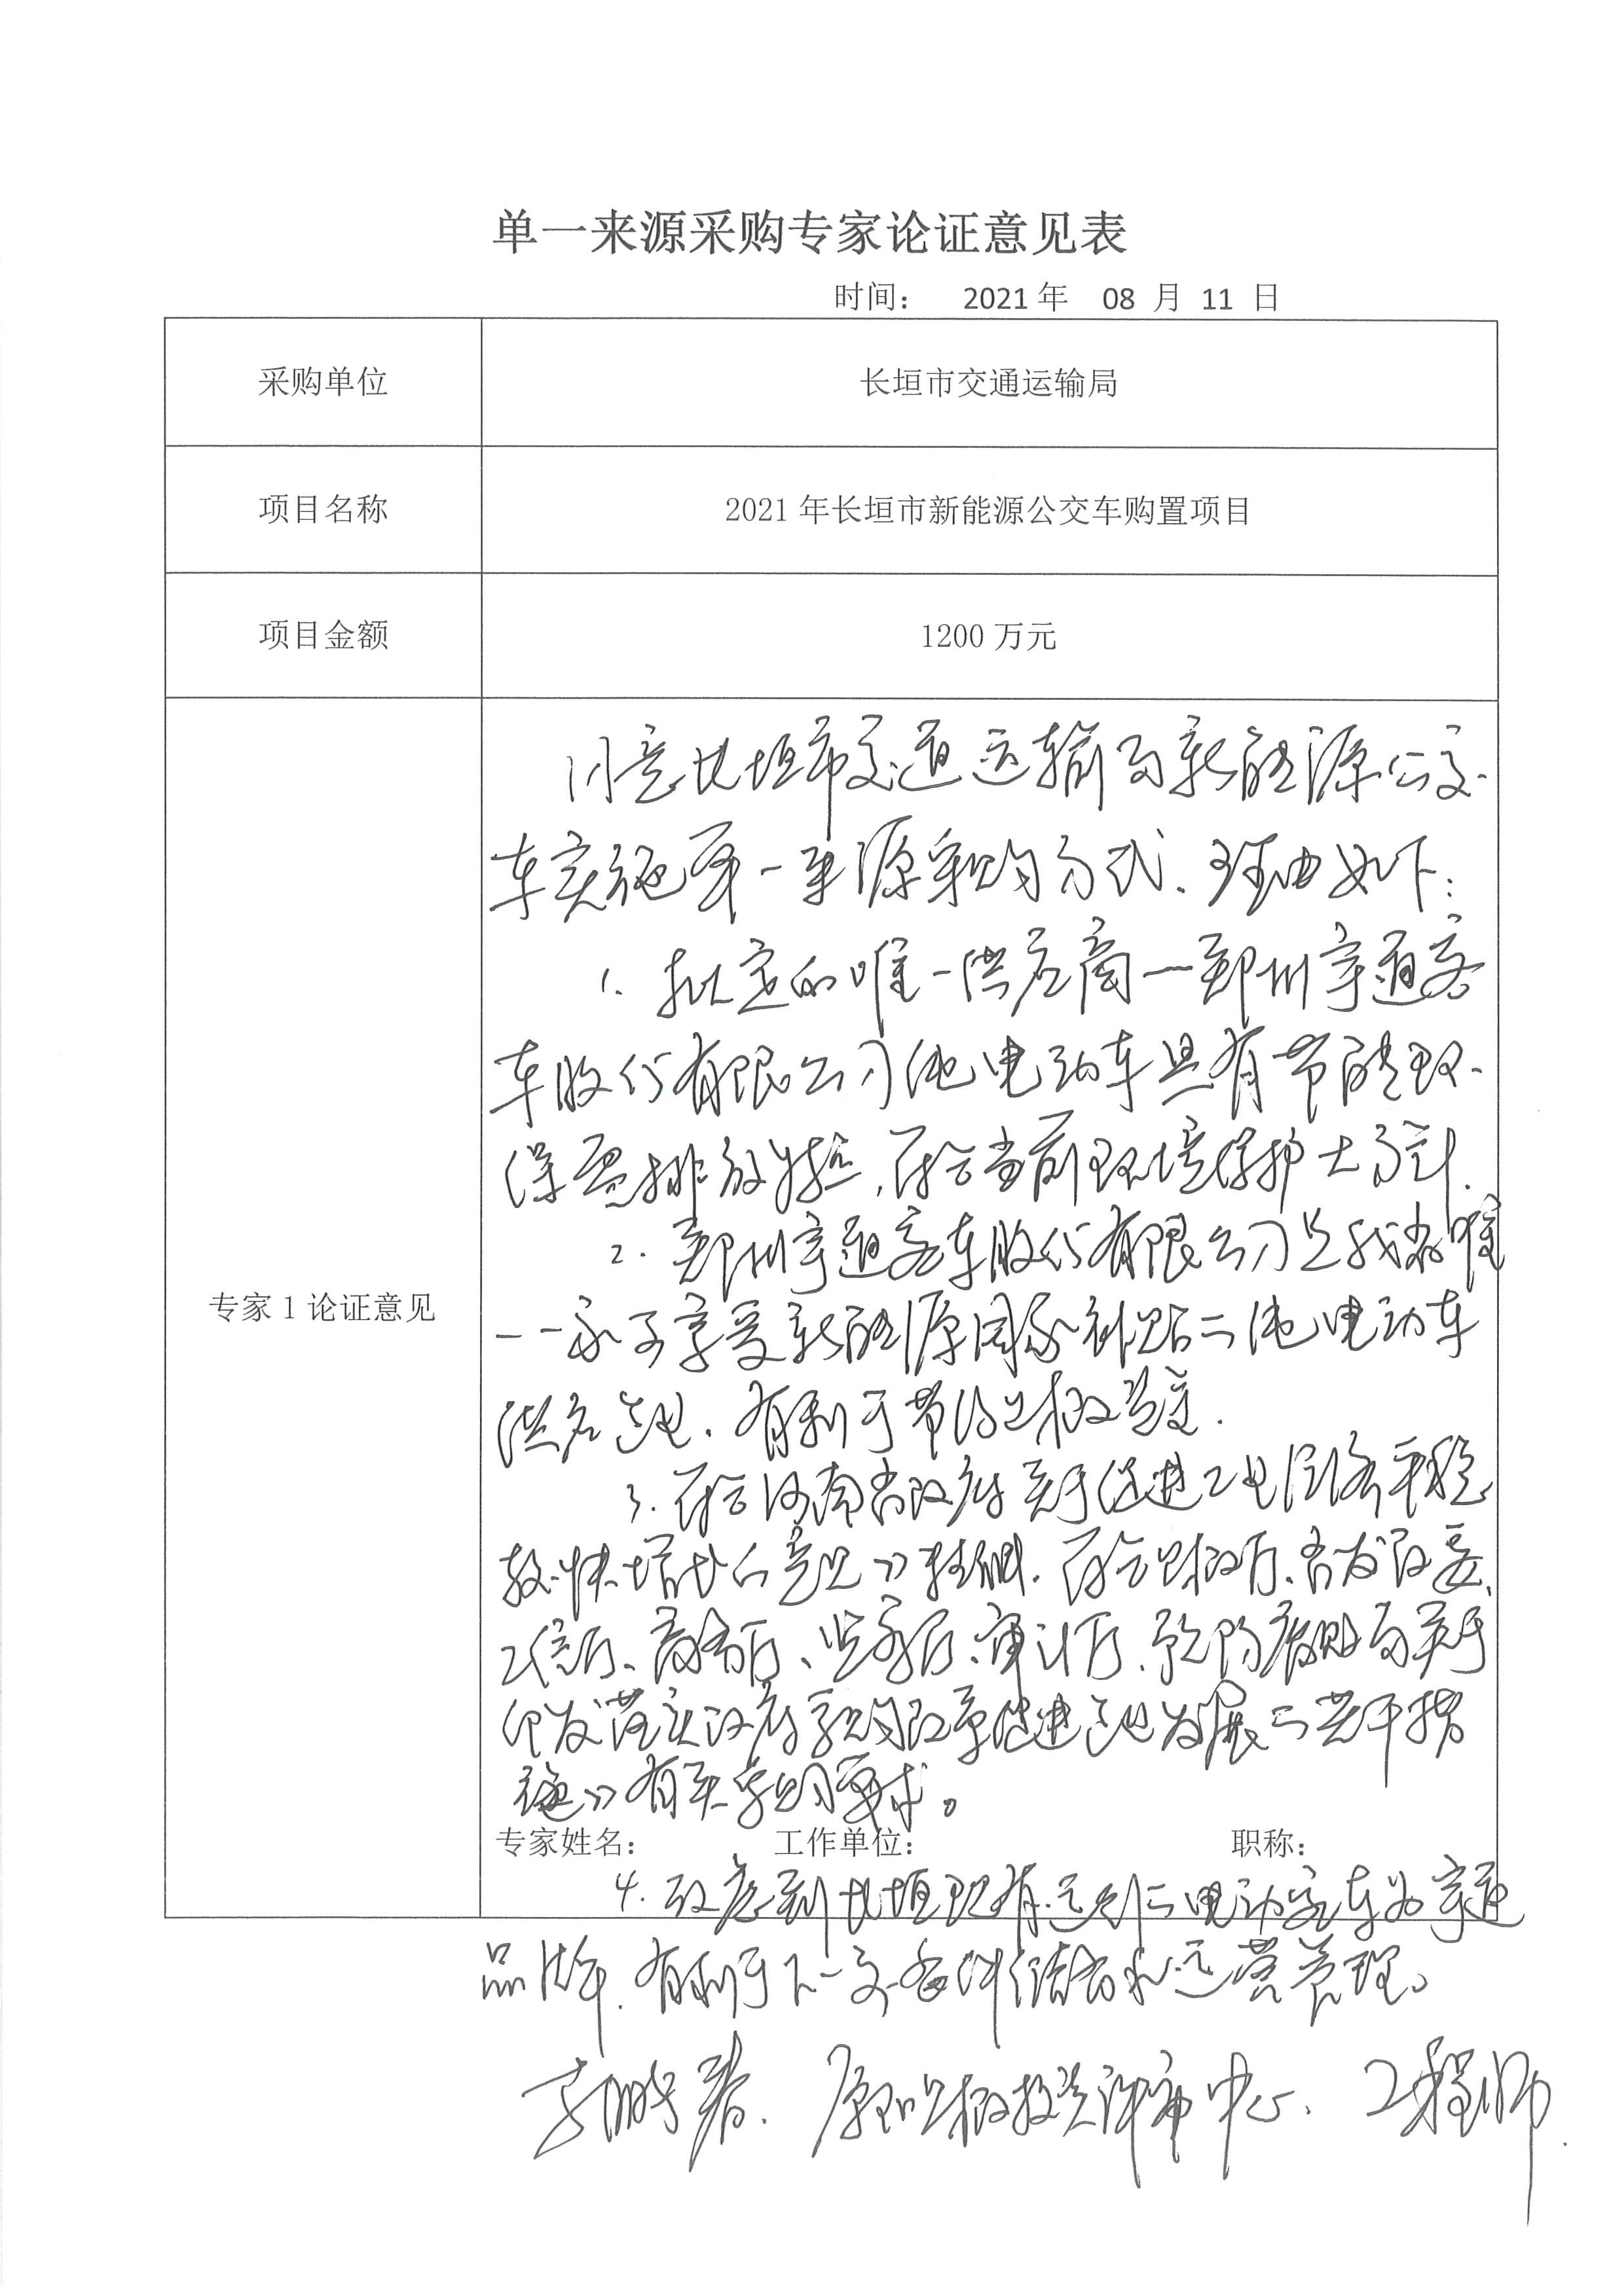 单一来源采购专家论证意见表
时间： 2021年 08 月 11 日
采购单位
长垣市交通运输局
项目名称
2021年长垣市新能源公交车购置项目
项目金额
1200万元
专家1论证意见
同意长垣市交通运输局新能源公交
车实施单一来源采购方式、理由如下：
1. 拟定的唯一供应商—郑州宇通客
车股份有限公司纯电动车具有节能环
保零排放特点，符合当前环境保护大方针.
2. 郑州宇通客车股份有限公司是我省唯
一一家可享受新能源国家补贴的纯电动车
供应企业. 有利于节约财政资金.
3. 符合河南省政府关于促进工业经济平稳
较快增长的意见》精神. 符合财政厅、省发改委、
工信厅、商务厅、监察厅、审计厅、预防腐败局关于
印发落实政府采购改革促进企业发展的若干措
施》有关采购要求。
专家姓名： 工作单位： 职称：
4. 考虑到长垣现有运行的电动客车为宇通
品牌. 有利于下一步维修和运营管理。
原阳县财政投资评审中心. 工程师